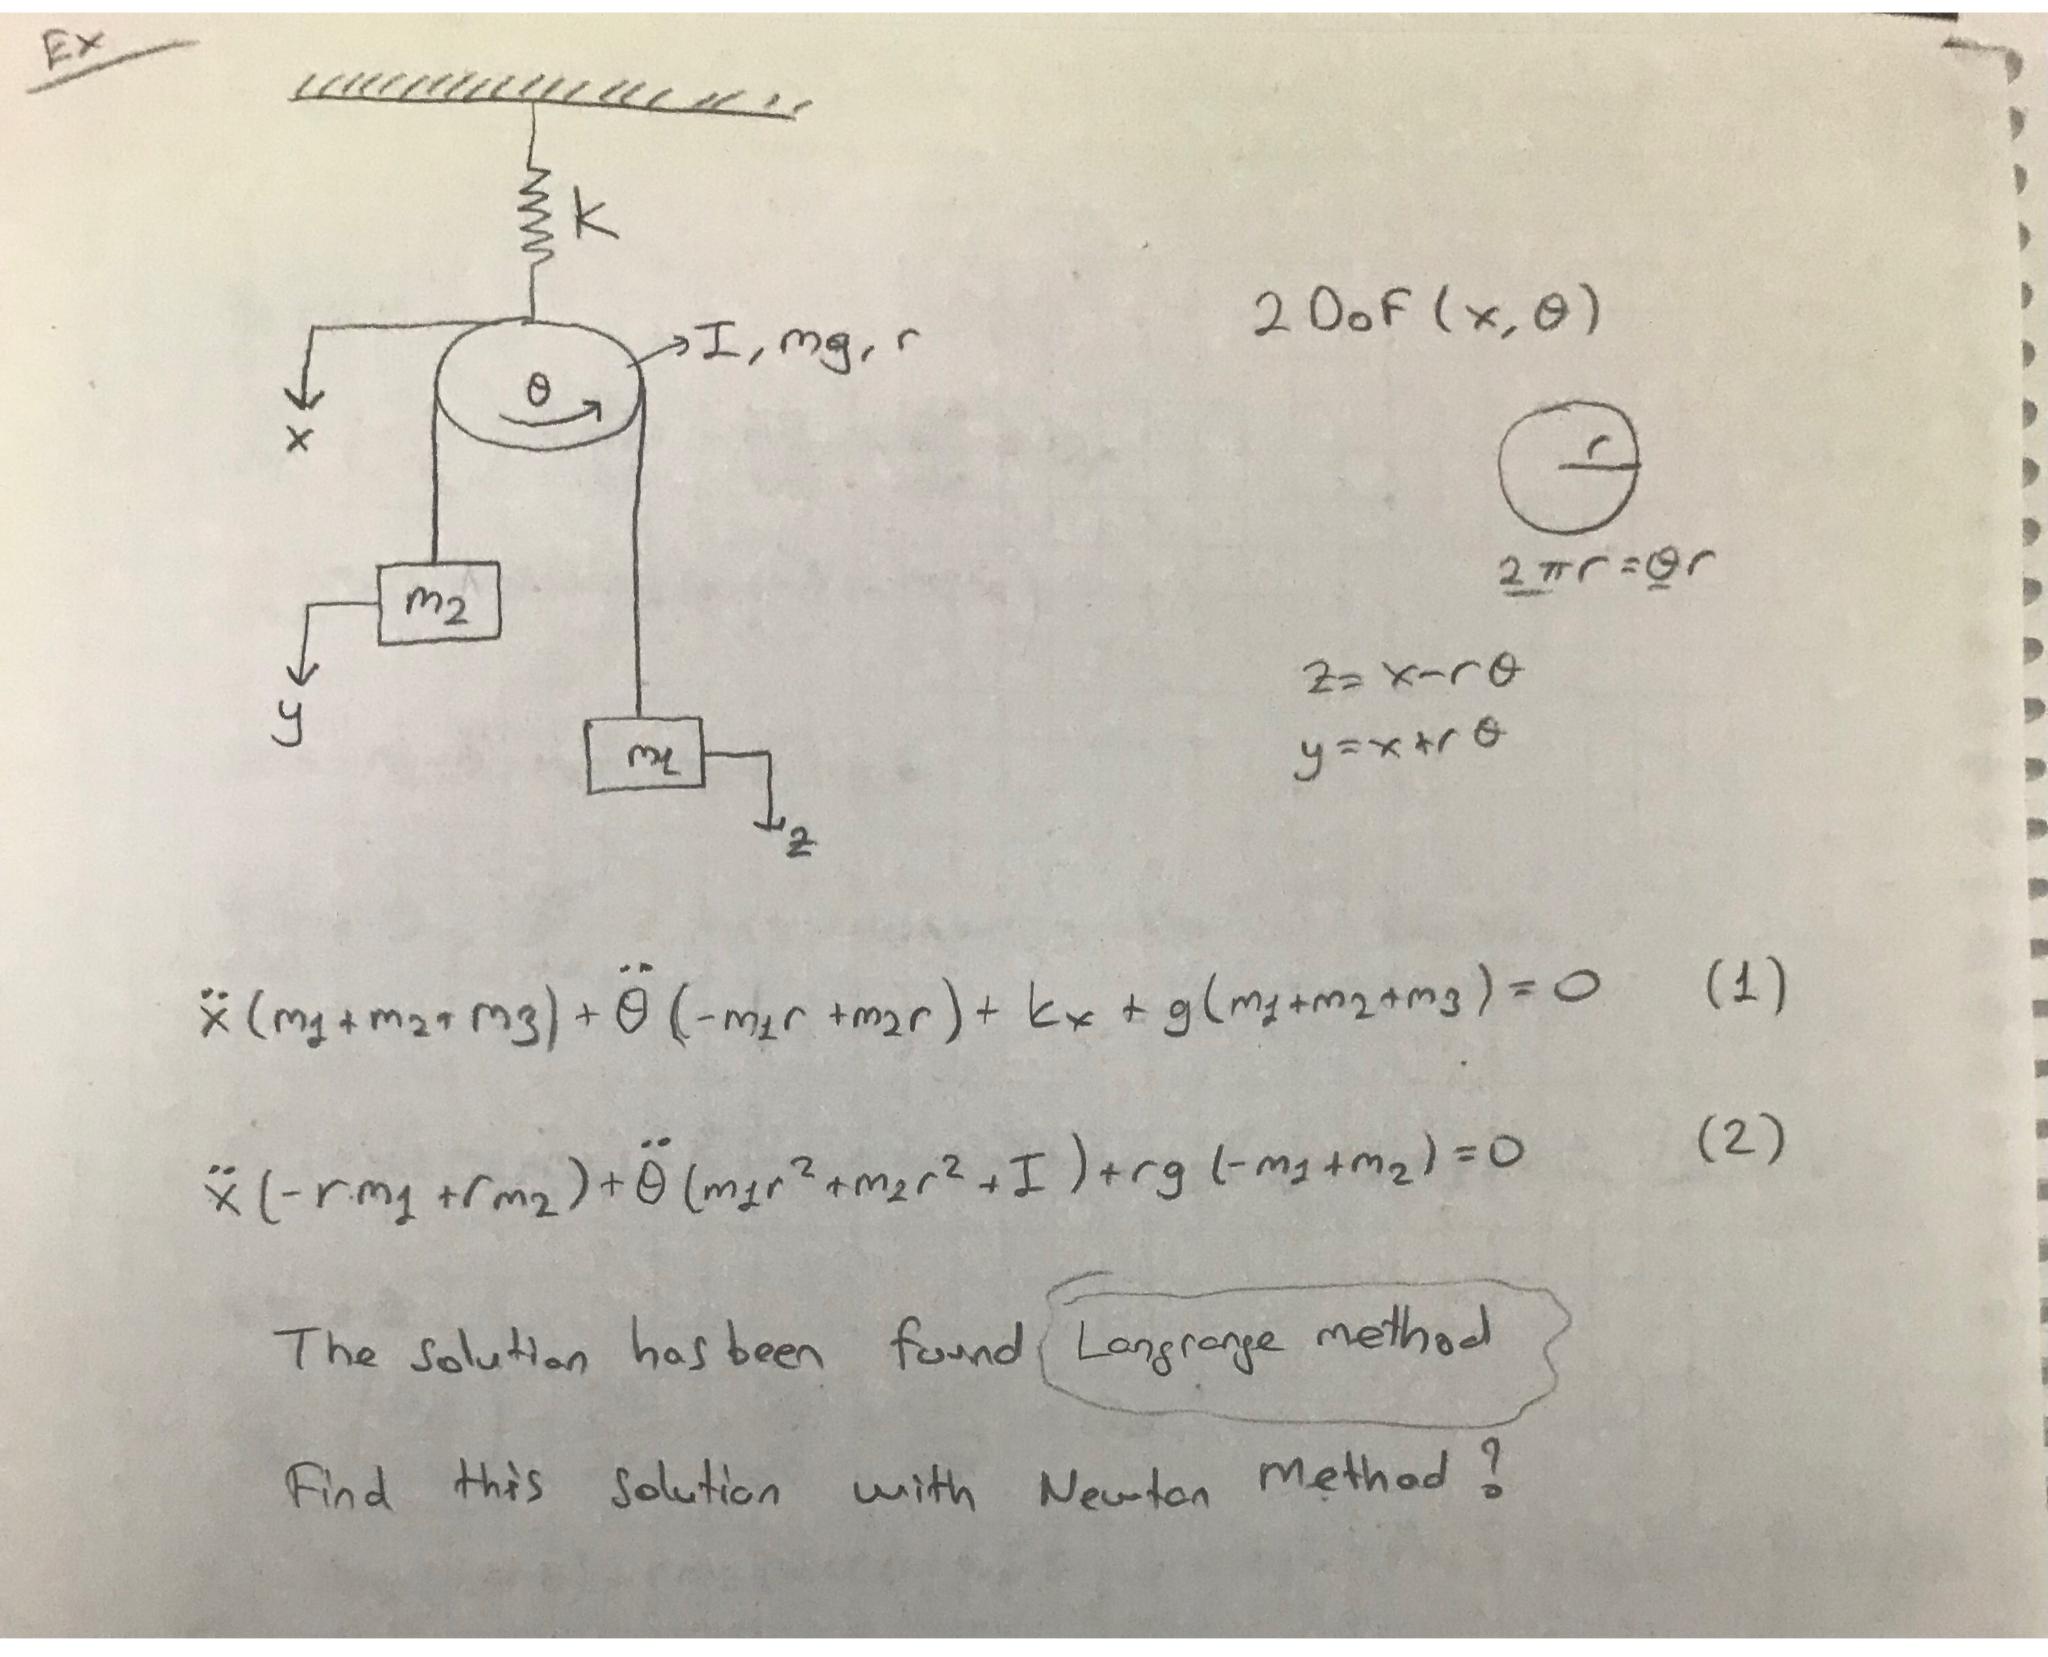 Ex
k
I, mg, r
2 DoF (x, θ)
θ
x
r
2πr = θr
m2
z = x-rθ
y
y = x+rθ
m1
z
ẍ (m1+m2+m3) + θ̈ (-m1r +m2r) + kx + g(m1+m2+m3) = 0 (1)
ẍ (-rm1 +rm2) + θ̈ (m1r²+m2r²+I) + rg (-m1+m2) = 0 (2)
The solution has been found Langrange method
Find this solution with Newton Method?